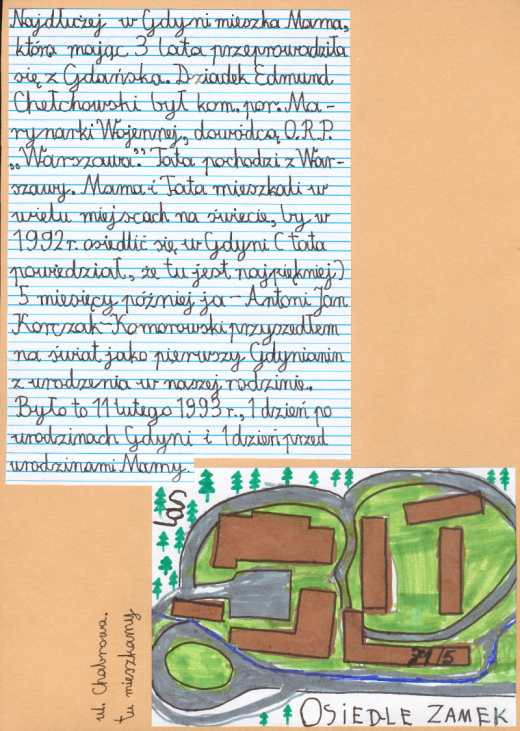 Najdłużej w Gdyni mieszka Mama,
która mając 3 lata przeprowadziła
się z Gdańska. Dziadek Edmund
Chełchowski był kom. por. Ma-
rynarki Wojennej, dowódcą O.R.P.
„Warszawa." Tata pochodzi z War-
szawy. Mama i Tata mieszkali w
wielu miejscach na świecie, by w
1992 r. osiedlić się w Gdyni (tata
powiedział, że tu jest najpiękniej)
5 miesięcy później ja - Antoni Jan
Korczak-Komorowski przyszedłem
na świat jako pierwszy Gdynianin
z urodzenia w naszej rodzinie.
Było to 11 lutego 1993 r., 1 dzień po
urodzinach Gdyni i 1 dzień przed
urodzinami Mamy.
las
ul. Chabrowa.
tu mieszkamy
71/5
OSIEDLE ZAMEK